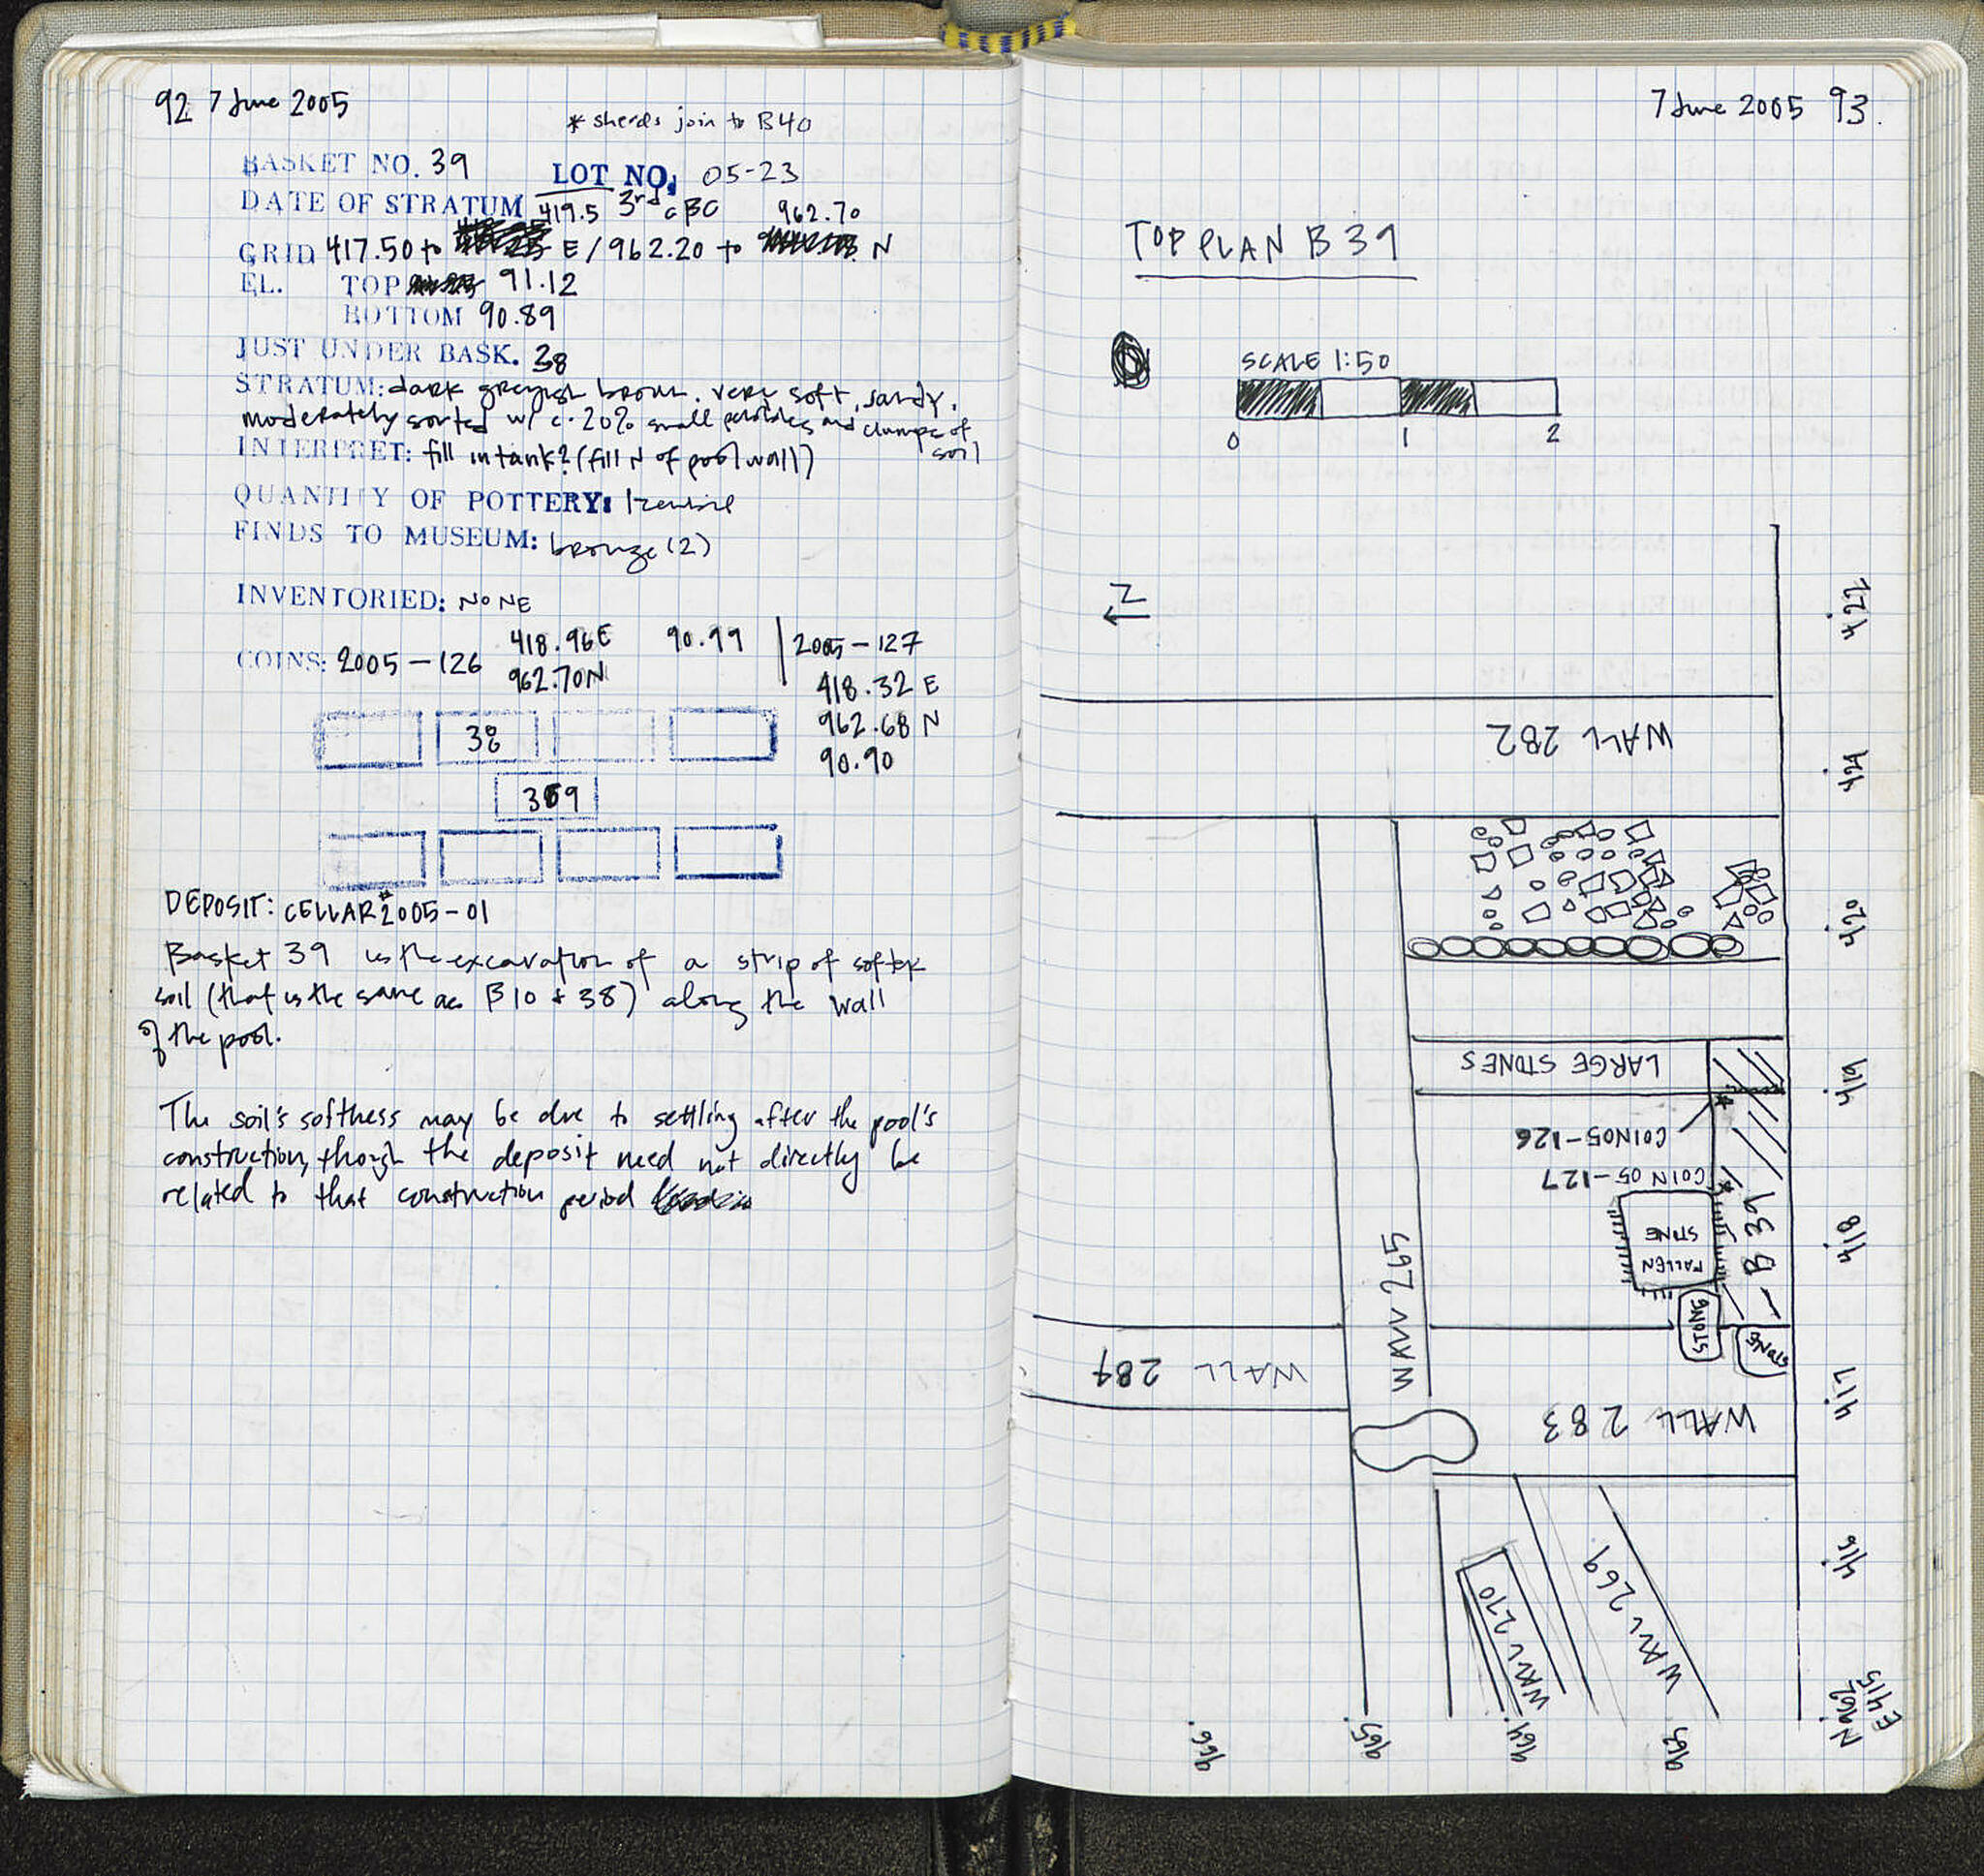 92 7 June 2005
* sherds join to B40
BASKET NO. 39 LOT NO. 05-23
DATE OF STRATUM 3rd c BC
419.5 962.70
GRID 417.50 to E / 962.20 to N
EL. TOP 91.12
BOTTOM 90.89
JUST UNDER BASK. 38
STRATUM: dark greyish brown. very soft, sandy,
moderately sorted w/ c. 20% small pebbles and clumps of
soil
INTERPRET: fill in tank? (fill N of pool wall)
QUANTITY OF POTTERY:
FINDS TO MUSEUM: bronze (2)
INVENTORIED: NONE
COINS: 2005-126 418.96E 90.99
962.70N
2005-127
418.32 E
962.68 N
90.90
38
39
DEPOSIT: CELLAR 2005-01
Basket 39 is the excavation of a strip of softer
soil (that is the same as B10 + 38) along the wall
of the pool.
The soil's softness may be due to settling after the pool's
construction, though the deposit need not directly be
related to that construction period
7 June 2005 93.
TOP PLAN B39
SCALE 1:50
0 1 2
N
422
WALL 282
421
420
LARGE STONES
419
COIN05-126
COIN 05-127
B 39
FALLEN
STONE
418
STONE
STONE
WALL 265
WALL 284
417
WALL 283
416
WALL 270
WALL 269
966.
965.
964.
963
N962
E415